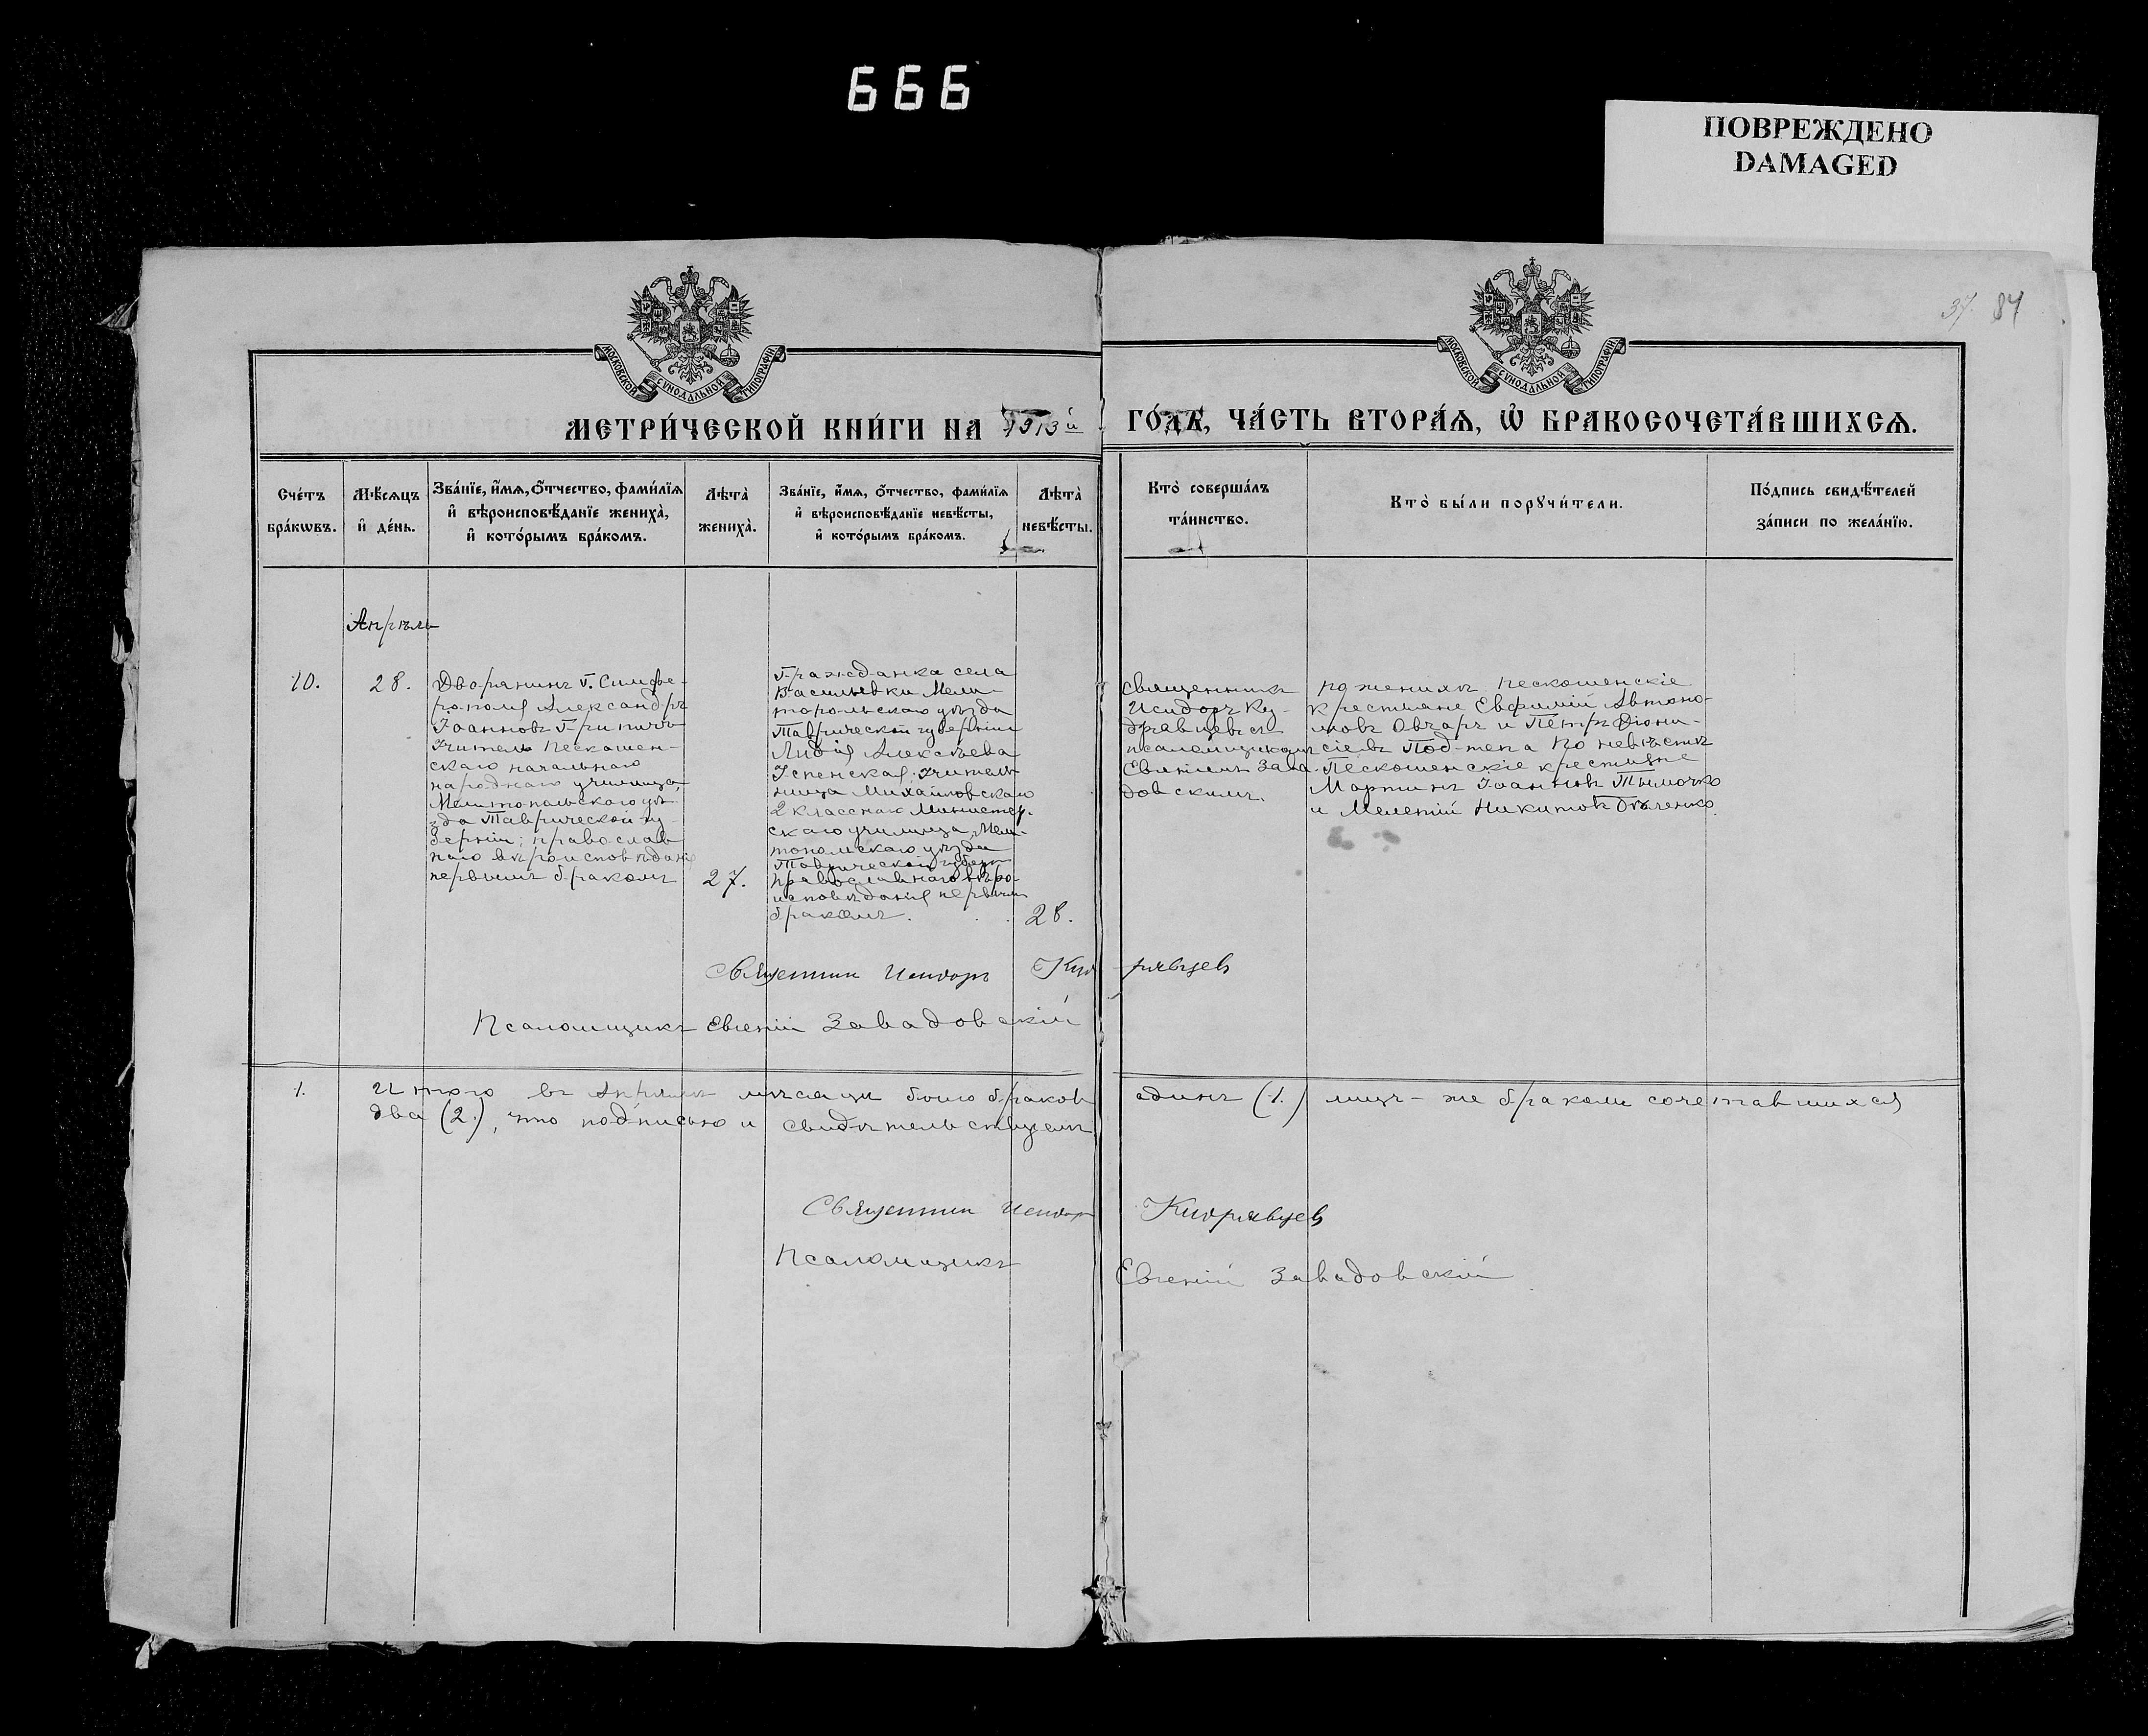 666
ПОВРЕЖДЕНО
DAMAGED
37. 84
МОСКОВСКОЙ СѴНОДАЛЬНОЙ ТИПОГРАФІИ
МОСКОВСКОЙ СѴНОДАЛЬНОЙ ТИПОГРАФІИ
МЕТРИ́ЧЕСКОЙ КНИ́ГИ НА 1913й ГО́ДЪ, ЧА́СТЬ ВТОРА́Ѧ, Ѡ҆ БРАКОСОЧЕТА́ВШИХСѦ.
Сче́тъ
бра́кѡвъ.
Мѣ́сѧцъ
и҆ де́нь.
Зва́нїе, и҆́мѧ, ѻ҆́тчество, фами́лїѧ
и҆ вѣроисповѣ́данїе жениха̀,
и҆ кото́рымъ бра́комъ.
Лѣта̀
жениха̀.
Зва́нїе, и҆́мѧ, ѻ҆́тчество, фами́лїѧ
и҆ вѣроисповѣ́данїе невѣ́сты,
и҆ кото́рымъ бра́комъ.
Лѣта̀
невѣ́сты.
Кто̀ соверша́лъ
та́инство.
Кто̀ бы́ли порꙋчи́тели.
По́дпись свидѣ́телей
за́писи по жела́нїю.
Апрѣль
10.
28.
Дворянинъ г. Симфе-
рополя Александръ
Іоанновъ
Учитель Пескошен-
скаго начальнаго
народнаго училища,
Мелитопольскаго уѣ-
зда Таврической гу-
берніи; православ
наго вѣроисповѣданія
первымъ бракомъ
27.
Гражданка села
Васильевки Мели-
топольскаго уѣзда
Таврической губерніи
Лидія Алексѣева
Успенская, учитель-
ница Михайловскаго
2 класснаго Министер-
скаго училища, Мели-
топольскаго уѣзда
Таврической губерн
православнаго вѣро-
исповѣданія первымъ
бракомъ.
28.
Священникъ
Исидоръ Ку-
дрявцевъ съ
псаломщикомъ
Евгеніемъ Зава-
довскимъ.
По женихѣ Пескошенскіе
крестьяне Евфимій Автоно-
мовъ Овчаръ и Петръ Діони-
сіевъ По невѣстѣ
Пескошенскіе крестьяне
Мартинъ Іоанновъ Тымочко
и Мелетій Никитовъ
Священник Исидоръ Кудрявцев
Псаломщикъ Евгеній Завадовскій
1. Итого въ Апрѣлѣ мѣсяцѣ было браковъ одинъ (1.) лицъ-же бракомъ сочетавшихся
два (2.), что подписью и свидѣтельствуемъ
Священник Исидоръ Кудрявцев
Псаломщикъ Евгеній Завадовскій